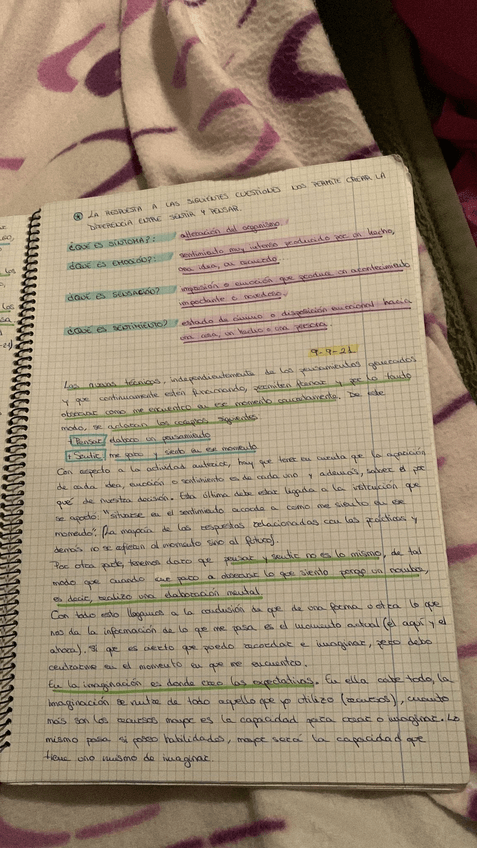 ⊛ LA RESPUESTA A LAS SIGUIENTES CUESTIONES NOS PERMITE CREAR LA
DIFERENCIA ENTRE SENTIR Y PENSAR.
¿QUÉ ES SÍNTOMA?: alteración del organismo.
¿QUÉ ES EMOCIÓN? sentimiento muy intenso producido por un hecho,
una idea, un recuerdo.
¿QUÉ ES SENSACIÓN? impresión o emoción que produce un acontecimiento
importante o novedoso.
¿QUÉ ES SENTIMIENTO? estado de ánimo o disposición emocional hacia
una cosa, un hecho o una persona.
9-9-21
Las nuevas técnicas, independientemente de los pensamientos generados
y que continuamente estén funcionando, permiten frenar y por lo tanto
observar como me encuentro en ese momento concretamente. De este
modo, se aclaran los conceptos siguientes:
+ Pensar: elaboro un pensamiento
+ Sentir: me paro y siento en ese momento
Con respecto a la actividad anterior, hay que tener en cuenta que la
de cada idea, emoción o sentimiento es de cada uno y además, saber el por
qué de nuestra decisión. Esta última debe estar ligada a la instrucción que
se aportó "situarse en el sentimiento acorde a como me siento en ese
momento". (La mayoría de las respuestas relacionadas con las prácticas y
demás no se refieran al momento sino al futuro).
Por otra parte, tenemos claro que pensar y sentir no es lo mismo, de tal
modo que cuando me paro a observar lo que siento pongo un nombre,
es decir, realizo una elaboración mental.
Con todo esto llegamos a la conclusión de que de una forma u otra lo que
nos da la información de lo que me pasa es el momento actual (el aquí y el
ahora). Sí que es cierto que puedo recordar e imaginar, pero debo
centrarme en el momento en que me encuentro.
En la imaginación es donde creo las expectativas. En ella cabe todo, la
imaginación se nutre de todo aquello que yo utilizo (recursos), cuanto
más son los recursos mayor es la capacidad para crear o imaginar. Lo
mismo pasa si poseo habilidades, mayor será la capacidad que
tiene uno mismo de imaginar.